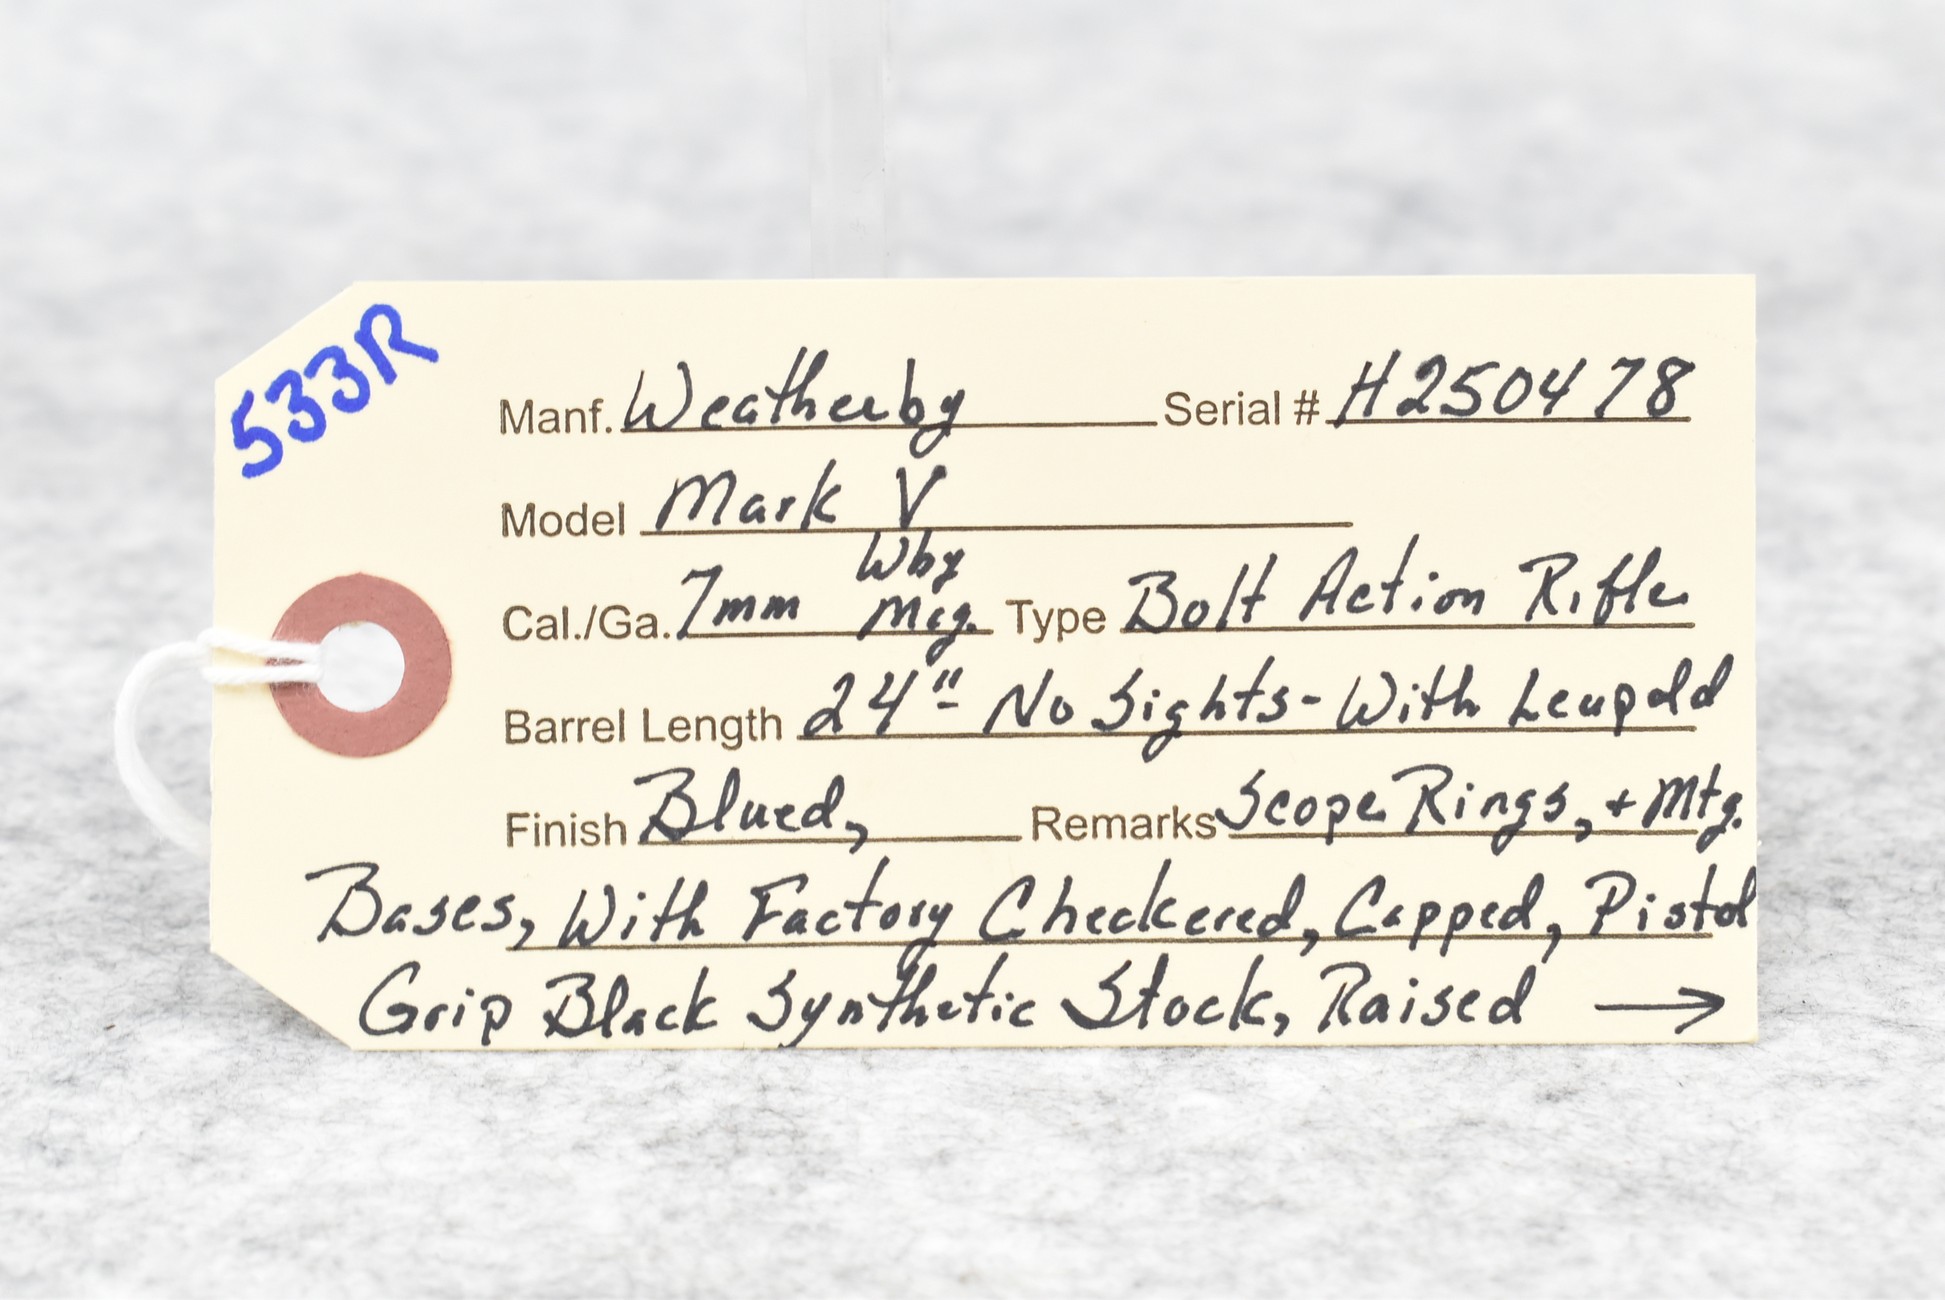 533R
Manf. Weatherby Serial # H250478
Model Mark V
Wby
Cal./Ga. 7mm Mag. Type Bolt Action Rifle
Barrel Length 24" - No Sights - With Leupold
Finish Blued, Remarks Scope Rings, + Mtg.
Bases, With Factory Checkered, Capped, Pistol
Grip Black Synthetic Stock, Raised →